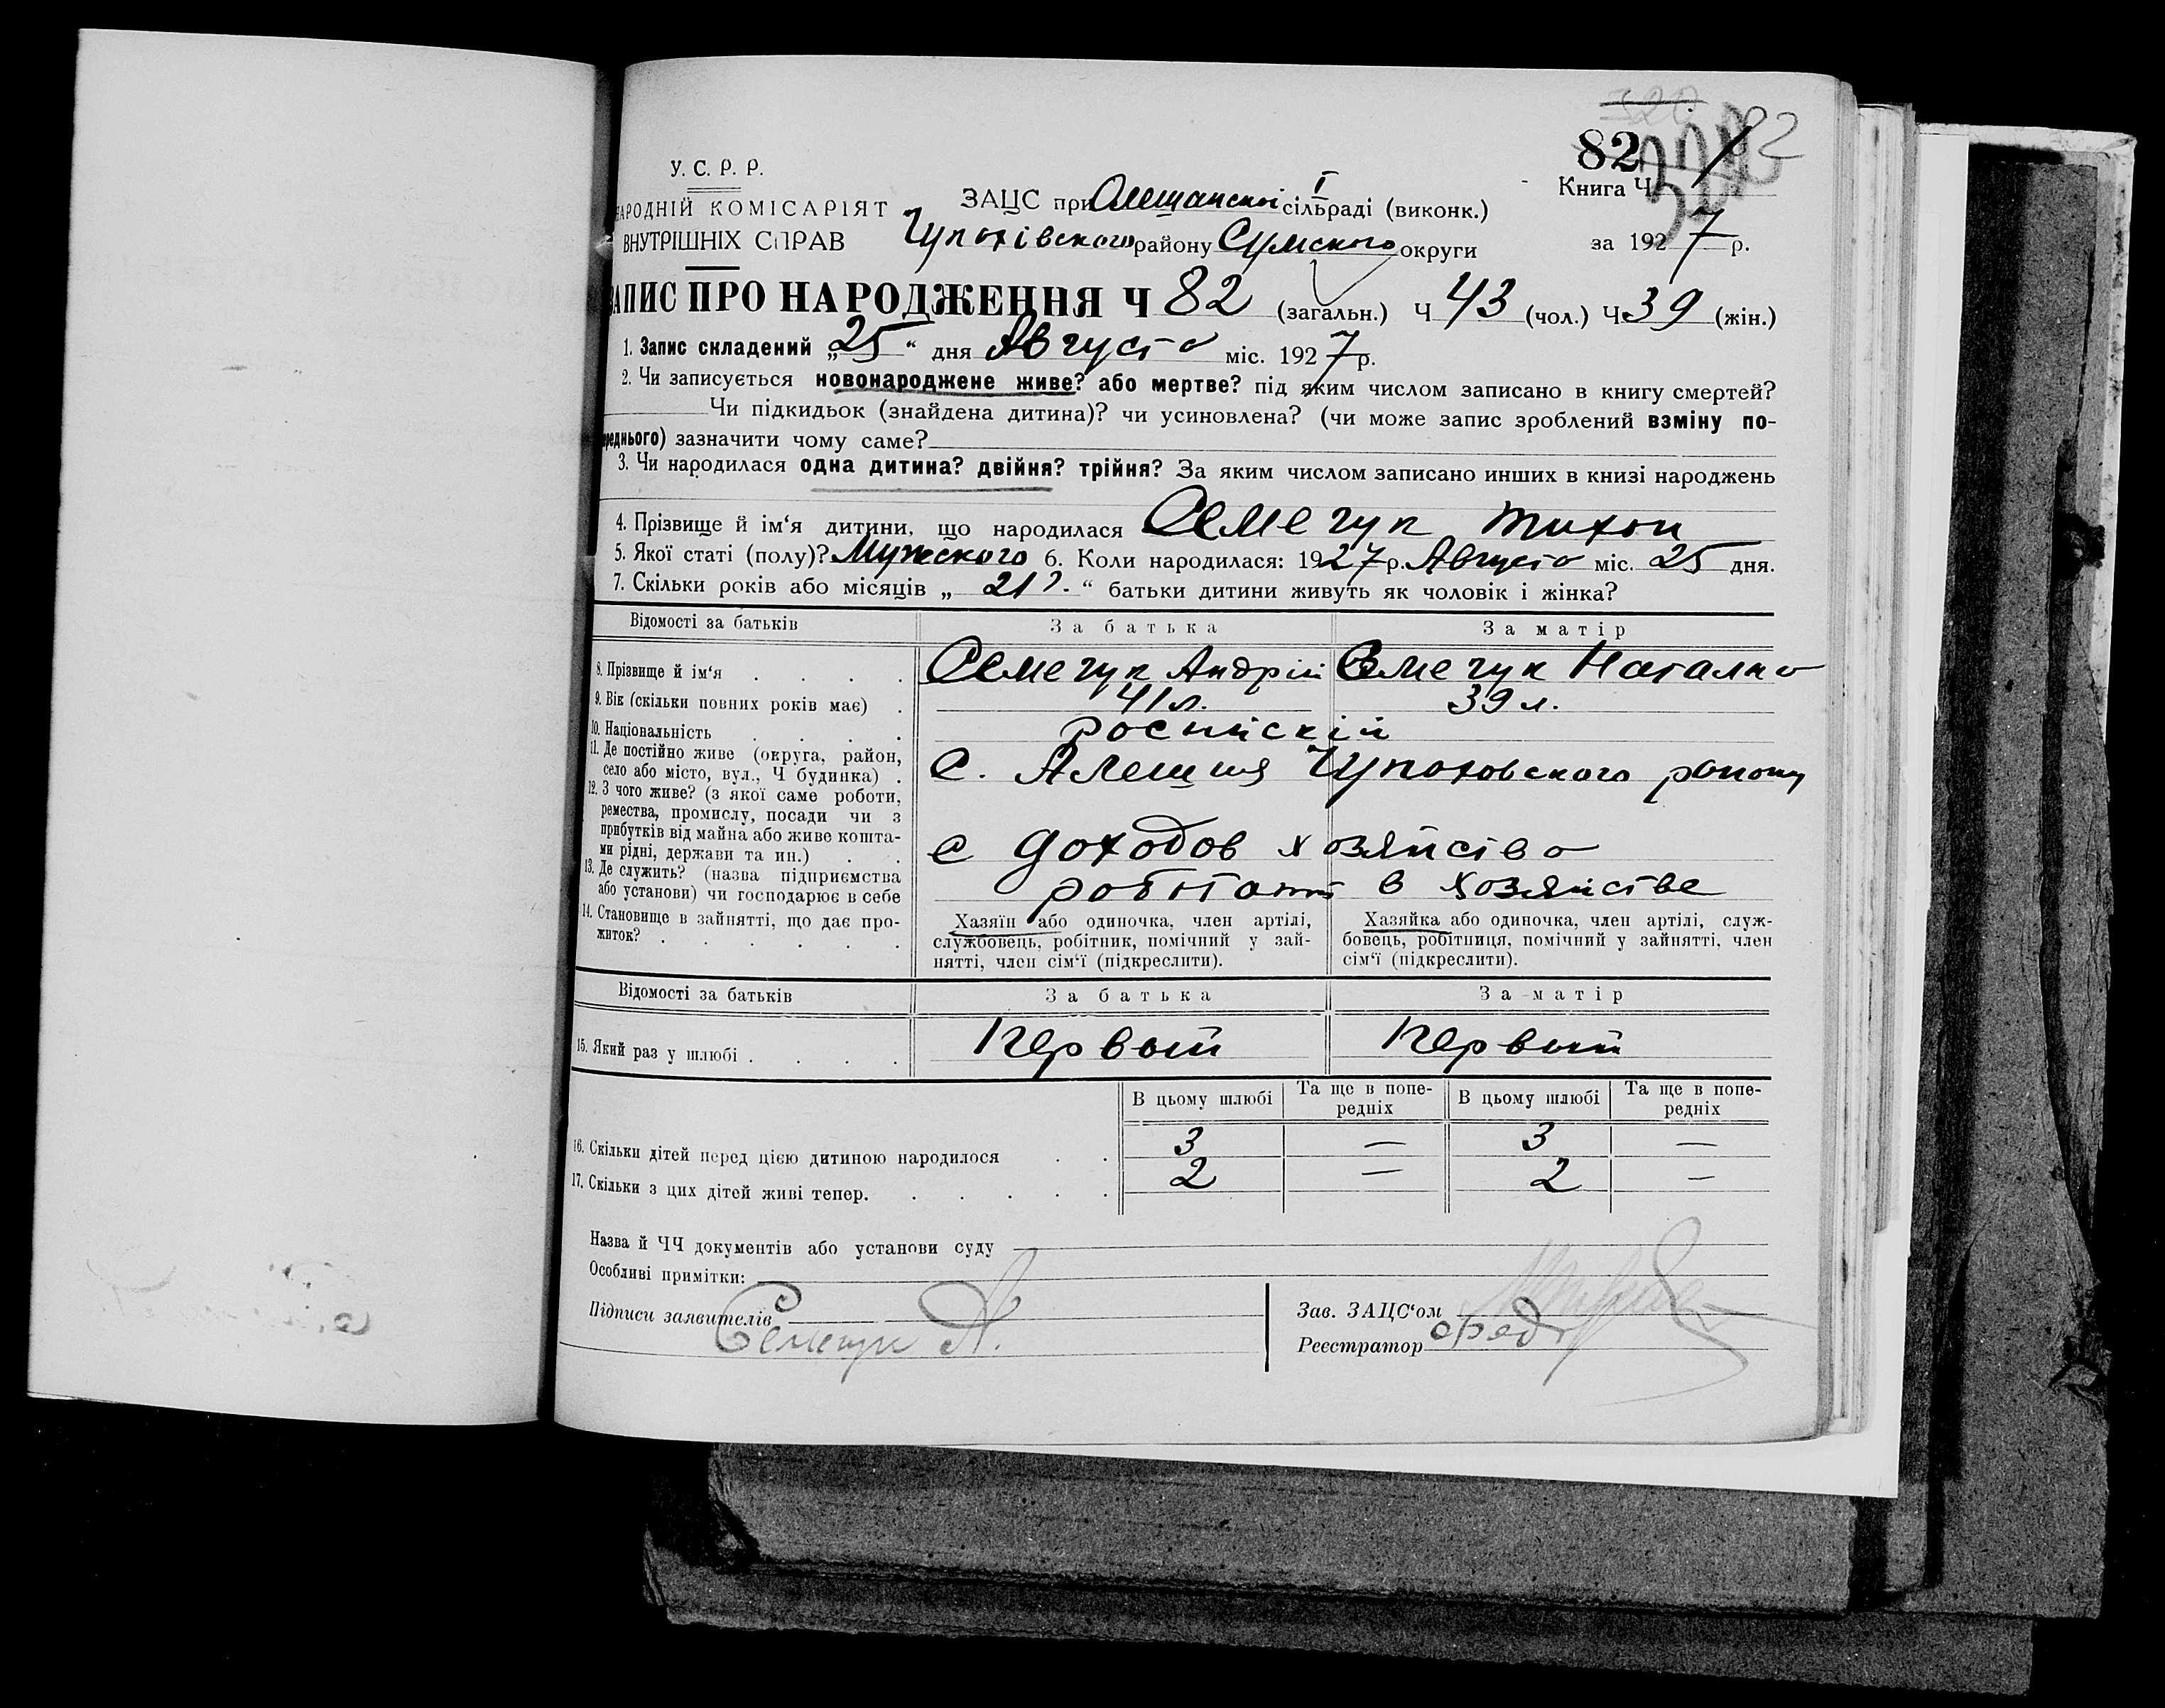 82 82
У. С. Р. Р.
Книга Ч
НАРОДНІЙ КОМІСАРІЯТ ЗАЦС при Олешанской I сільраді (виконк.)
ВНУТРІШНІХ СПРАВ Чупохівского району Сумского округи за 1927 р.
ЗАПИС ПРО НАРОДЖЕННЯ Ч 82 (загальн.) Ч 43 (чол.) Ч 39 (жін.)
1. Запис складений „25“ дня Августа міс. 1927 р.
2. Чи записується новонароджене живе? або мертве? під яким числом записано в книгу смертей?
Чи підкидьок (знайдена дитина)? чи усиновлена? (чи може запис зроблений взміну по-
реднього) зазначити чому саме?
3. Чи народилася одна дитина? двійня? трійня? За яким числом записано инших в книзі народжень
4. Прізвище й ім‘я дитини, що народилася Семечук Тихон
5. Якої статі (полу)? Мужского 6. Коли народилася: 1927 р. Августа міс. 25 дня.
7. Скільки років або місяців „ 21 г. “ батьки дитини живуть як чоловік і жінка?
Відомості за батьків За батька За матір
8. Прізвище й ім‘я Семечук Андрій Семечук Наталка
9. Вік (скільки повних років має) 41 л. 39 л.
10. Національність россійскій
11. Де постійно живе (округа, район,
село або місто, вул., Ч будинка) С. Алешня Чупоховского району
12. З чого живе? (з якої саме роботи,
ремества, промислу, посади чи з
прибутків від майна або живе кошта-
ми рідні, держави та ин.) с доходов хозяйства
13. Де служить? (назва підприємства
або установи) чи господарює в себе работают в хозяйстве
14. Становище в зайнятті, що дає про-
житок?
Хазяїн або одиночка, член артілі,
службовець, робітник, помічний у зай-
нятті, член сім‘ї (підкреслити).
Хазяйка або одиночка, член артілі, служ-
бовець, робітниця, помічний у зайнятті, член
сім‘ї (підкреслити).
Відомості за батьків За батька За матір
15. Який раз у шлюбі Первый Первый
В цьому шлюбі Та ще в попе-
редніх В цьому шлюбі Та ще в попе-
редніх
16. Скільки дітей перед цією дитиною народилося 3 — 3 —
17. Скільки з цих дітей живі тепер. 2 — 2 —
Назва й ЧЧ документів або установи суду
Особливі примітки:
Підписи заявителів Семечук А.
Зав. ЗАЦС‘ом
Реєстратор